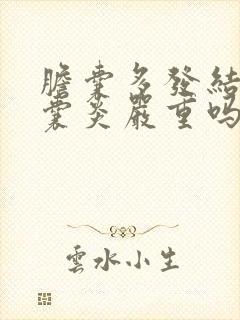 膽囊多發結
囊炎嚴重吗
雲水小生